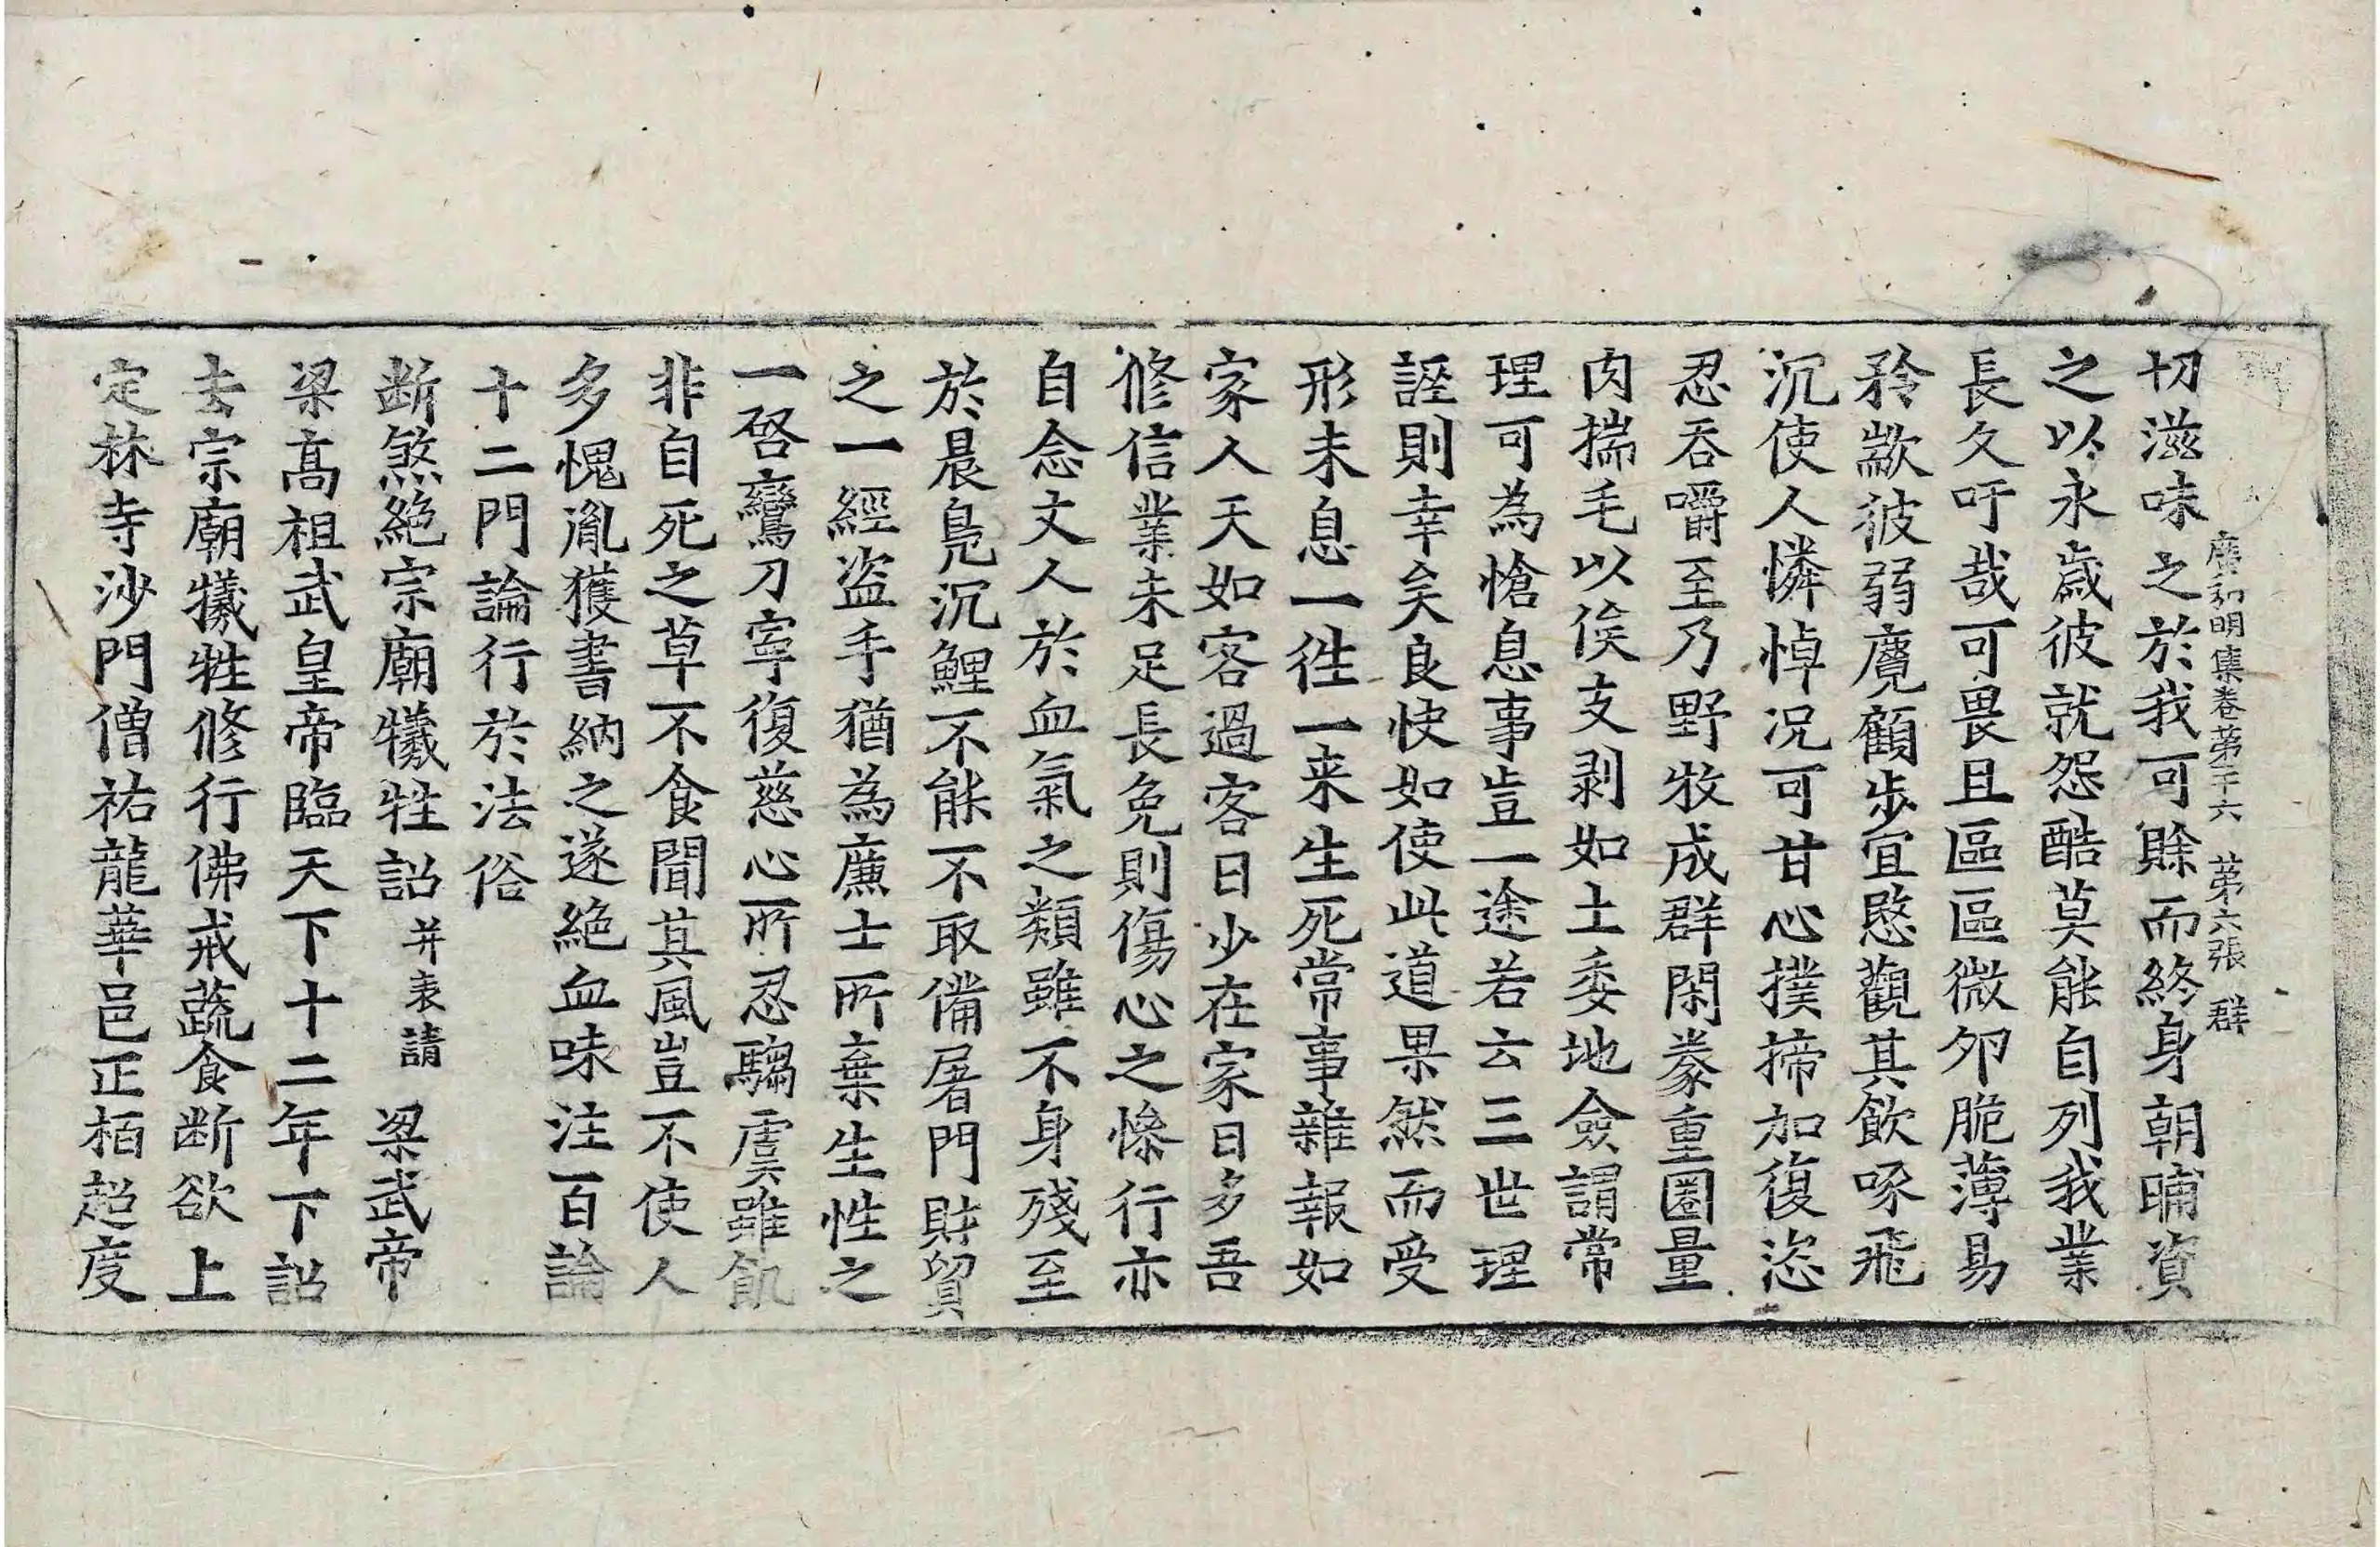 廣弘明集卷第二十六　第六張　群
切滋味之於我可賒而終身朝晡資
之以永歲彼就怨酷莫能自列我業
長久吁哉可畏且區區微卵脆薄易
矜歂彼弱麑顧步宜愍觀其飲啄飛
沉使人憐悼况可甘心撲揥加復恣
忍吞嚼至乃野牧成群閑豢重圈量
肉揣毛以俟支剥如土委地僉謂常
理可為愴息事豈一途若云三世理
誣則幸矣良快如使此道果然而受
形未息一往一来生死常事雜報如
家人天如客過客日少在家日多吾
修信業未足長免則傷心之慘行亦
自念丈人於血氣之類雖不身殘至
於晨鳧沉鯉不能不取備屠門財貿
之一經盗手猶為廉士所棄生性之
一啓鸞刀寜復慈心所忍騶虞雖飢
非自死之草不食聞其風豈不使人
多愧胤獲書納之遂絶血味注百論
十二門論行於法俗
断煞絶宗廟犧牲詔并表請　梁武帝
梁髙祖武皇帝臨天下十二年下詔
去宗廟犧牲修行佛戒蔬食断欲上
定林寺沙門僧祐龍華邑正栢超度